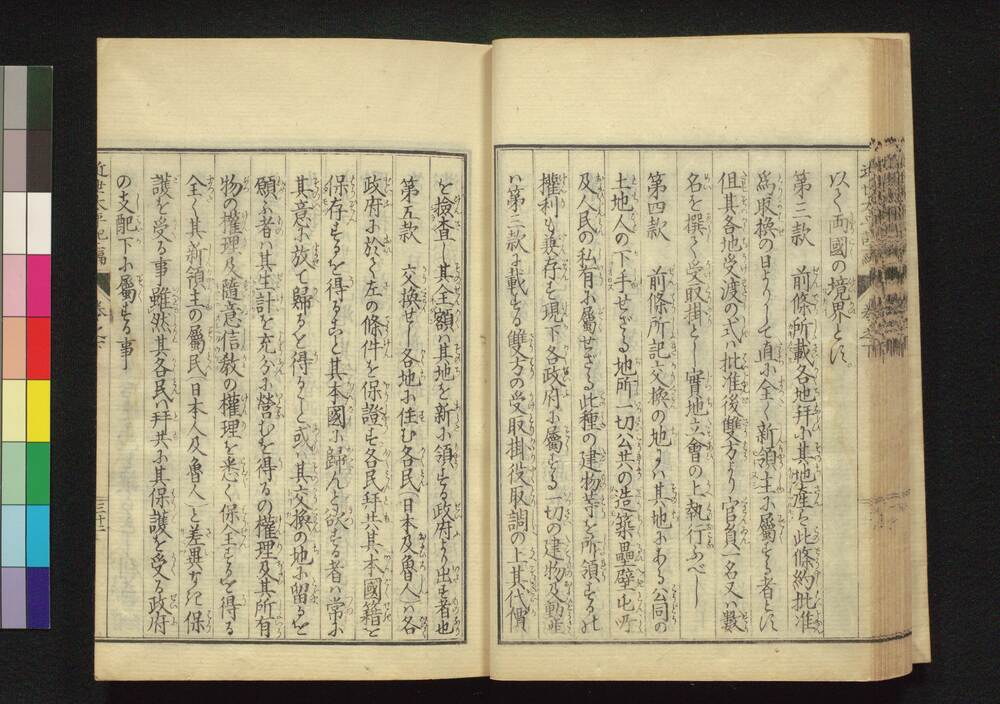 以て両國の境界とす。
第三款　前條所載各地并に其地産は此條約批准
爲取換の日よりして直に全く新領主に屬する者とす
但其各地受渡の式ハ批准後雙方より官員一名又ハ數
名を撰て受取掛とし實地立會の上執行ふべし
第四款　前條所記交換の地にハ其地にある公同の
土地人の下手せざる地所一切公共の造築壘壁屯所
及人民の私有に屬せざる此種の建物等を所領するの
權利も兼存す現下各政府に屬する一切の建物及動産
ハ第三款に載する雙方の受取掛役取調の上其代價
を撿査し其全額ハ其地を新に領する政府より出す者也
第五款　交換せし各地に住む各民(日本及魯人)ハ各
政府に於て左の條件を保證す各民并共其本國籍を
保存するを得ること其本國に歸んと欲する者ハ常に
其意に放て歸るを得べしと或ハ其交換の地に留るを
願ふ者ハ其生計を充分に營むを得るの權理及其所有
物の權理及隨意信教の權理を悉く保全するを得る
全く其新領主の屬民(日本人及魯人)と差異なき保
護を受る事雖然其各民ハ并共に其保護を受る政府
の支配下に屬する事
近世太平記 編
卷之下
三十一